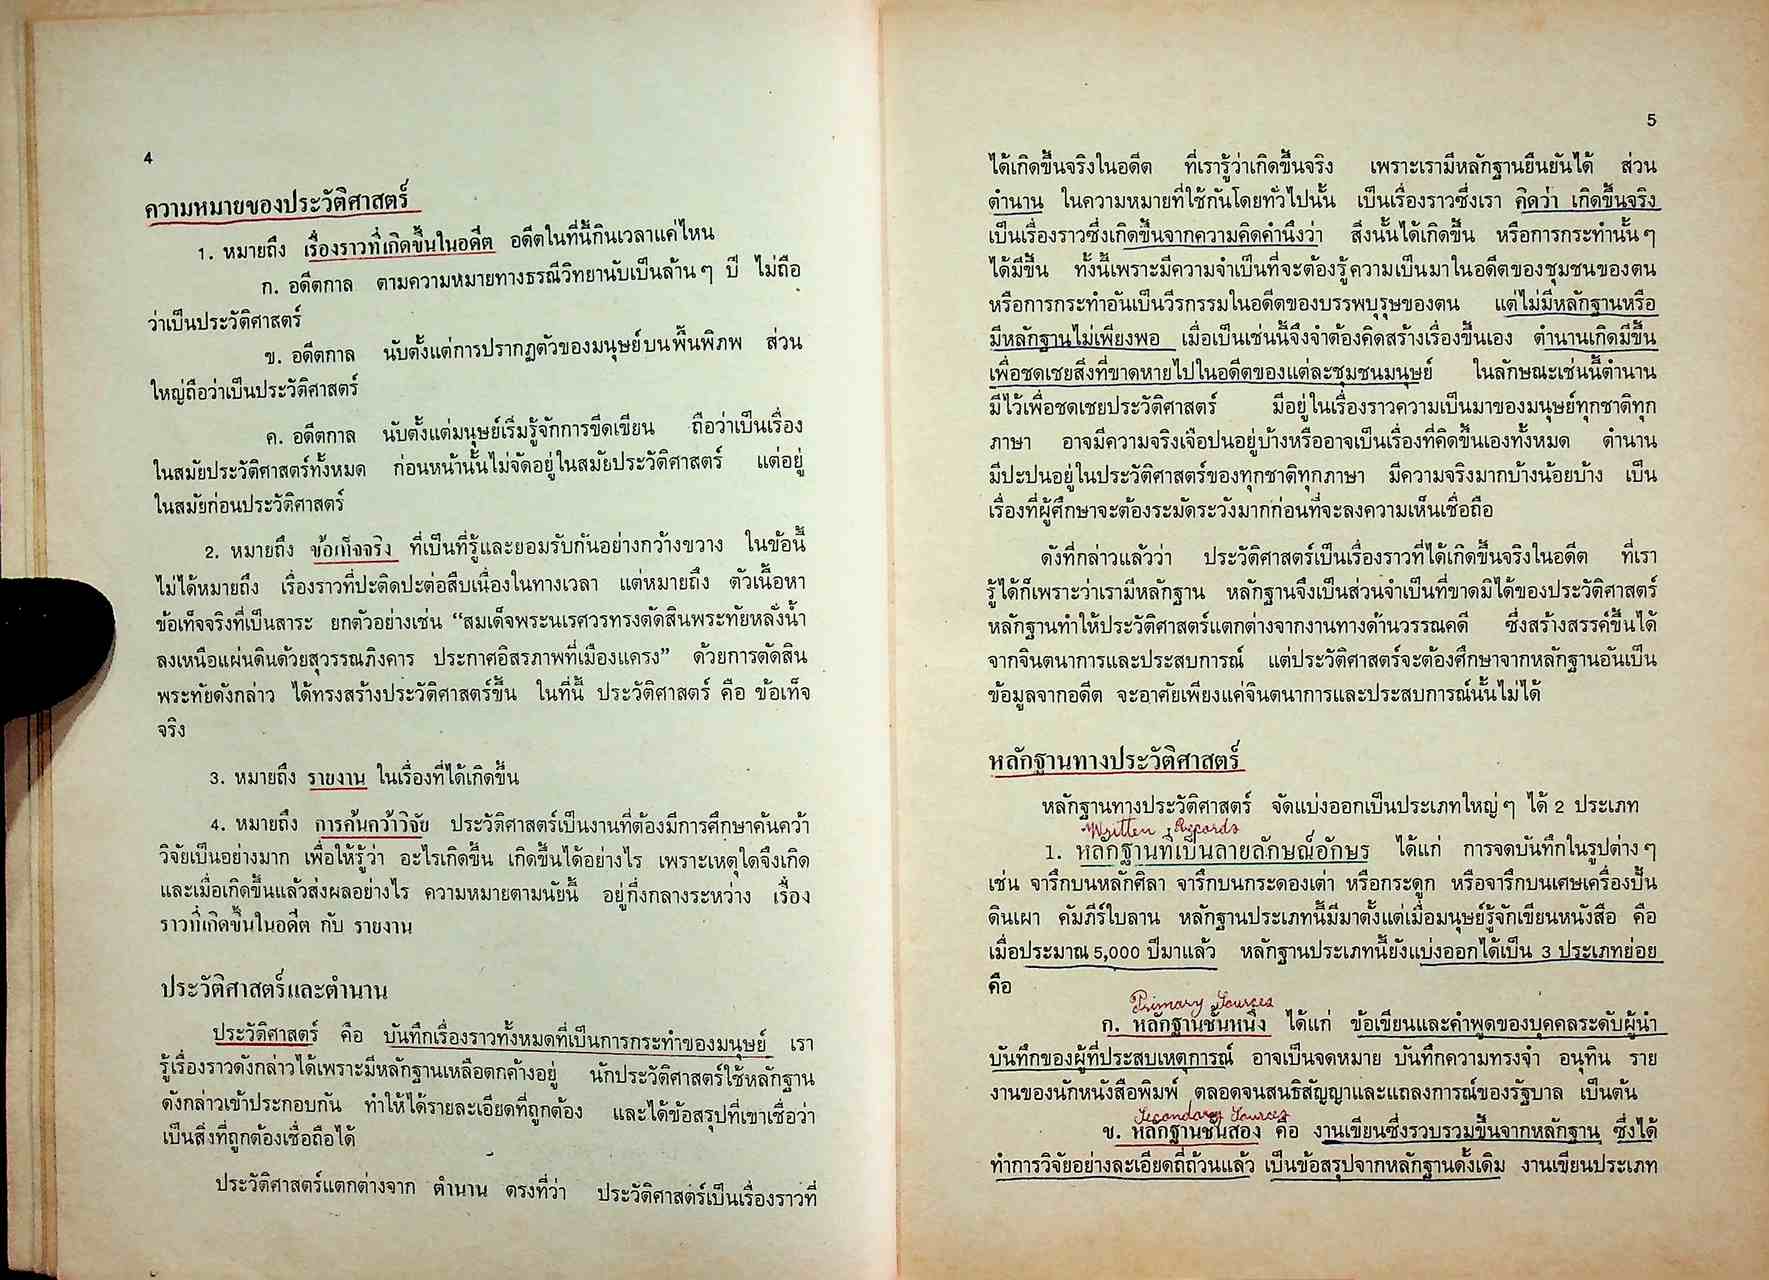 4
ความหมายของประวัติศาสตร์
1. หมายถึง เรื่องราวที่เกิดขึ้นในอดีต อดีตในที่นี้กินเวลาแค่ไหน
ก. อดีตกาล ตามความหมายทางธรณีวิทยานับเป็นล้านๆ ปี ไม่ถือ
ว่าเป็นประวัติศาสตร์
ข. อดีตกาล นับตั้งแต่การปรากฏตัวของมนุษย์บนพื้นพิภพ ส่วน
ใหญ่ถือว่าเป็นประวัติศาสตร์
ค. อดีตกาล นับตั้งแต่มนุษย์เริ่มรู้จักการขีดเขียน ถือว่าเป็นเรื่อง
ในสมัยประวัติศาสตร์ทั้งหมด ก่อนหน้านั้นไม่จัดอยู่ในสมัยประวัติศาสตร์ แต่อยู่
ในสมัยก่อนประวัติศาสตร์
2. หมายถึง ข้อเท็จจริง ที่เป็นที่รู้และยอมรับกันอย่างกว้างขวาง ในข้อนี้
ไม่ได้หมายถึง เรื่องราวที่ปะติดปะต่อสืบเนื่องในทางเวลา แต่หมายถึง ตัวเนื้อหา
ข้อเท็จจริงที่เป็นสาระ ยกตัวอย่างเช่น “สมเด็จพระนเรศวรทรงตัดสินพระทัยหลั่งน้ำ
ลงเหนือแผ่นดินด้วยสุวรรณภิงคาร ประกาศอิสรภาพที่เมืองแครง” ด้วยการตัดสิน
พระทัยดังกล่าว ได้ทรงสร้างประวัติศาสตร์ขึ้น ในที่นี้ ประวัติศาสตร์ คือ ข้อเท็จ
จริง
3. หมายถึง รายงาน ในเรื่องที่ได้เกิดขึ้น
4. หมายถึง การค้นคว้าวิจัย ประวัติศาสตร์เป็นงานที่ต้องมีการศึกษาค้นคว้า
วิจัยเป็นอย่างมาก เพื่อให้รู้ว่า อะไรเกิดขึ้น เกิดขึ้นได้อย่างไร เพราะเหตุใดจึงเกิด
และเมื่อเกิดขึ้นแล้วส่งผลอย่างไร ความหมายตามนัยนี้ อยู่กึ่งกลางระหว่าง เรื่อง
ราวที่เกิดขึ้นในอดีต กับ รายงาน
ประวัติศาสตร์และตำนาน
ประวัติศาสตร์ คือ บันทึกเรื่องราวทั้งหมดที่เป็นการกระทำของมนุษย์ เรา
รู้เรื่องราวดังกล่าวได้เพราะมีหลักฐานเหลือตกค้างอยู่ นักประวัติศาสตร์ใช้หลักฐาน
ดังกล่าวเข้าประกอบกัน ทำให้ได้รายละเอียดที่ถูกต้อง และได้ข้อสรุปที่เขาเชื่อว่า
เป็นสิ่งที่ถูกต้องเชื่อถือได้
ประวัติศาสตร์แตกต่างจาก ตำนาน ตรงที่ว่า ประวัติศาสตร์เป็นเรื่องราวที่
5
ได้เกิดขึ้นจริงในอดีต ที่เรารู้ว่าเกิดขึ้นจริง เพราะเรามีหลักฐานยืนยันได้ ส่วน
ตำนาน ในความหมายที่ใช้กันโดยทั่วไปนั้น เป็นเรื่องราวซึ่งเรา คิดว่า เกิดขึ้นจริง
เป็นเรื่องราวซึ่งเกิดขึ้นจากความคิดคำนึงว่า สิ่งนั้นได้เกิดขึ้น หรือการกระทำนั้นๆ
ได้มีขึ้น ทั้งนี้เพราะมีความจำเป็นที่จะต้องรู้ความเป็นมาในอดีตของชุมชนของตน
หรือการกระทำอันเป็นวีรกรรมในอดีตของบรรพบุรุษของตน แต่ไม่มีหลักฐานหรือ
มีหลักฐานไม่เพียงพอ เมื่อเป็นเช่นนี้จึงจำต้องคิดสร้างเรื่องขึ้นเอง ตำนานเกิดมีขึ้น
เพื่อชดเชยสิ่งที่ขาดหายไปในอดีตของแต่ละชุมชนมนุษย์ ในลักษณะเช่นนี้ตำนาน
มีไว้เพื่อชดเชยประวัติศาสตร์ มีอยู่ในเรื่องราวความเป็นมาของมนุษย์ทุกชาติทุก
ภาษา อาจมีความจริงเจือปนอยู่บ้างหรืออาจเป็นเรื่องที่คิดขึ้นเองทั้งหมด ตำนาน
มีปะปนอยู่ในประวัติศาสตร์ของทุกชาติทุกภาษา มีความจริงมากบ้างน้อยบ้าง เป็น
เรื่องที่ผู้ศึกษาจะต้องระมัดระวังมากก่อนที่จะลงความเห็นเชื่อถือ
ดังที่กล่าวแล้วว่า ประวัติศาสตร์เป็นเรื่องราวที่ได้เกิดขึ้นจริงในอดีต ที่เรา
รู้ได้ก็เพราะว่าเรามีหลักฐาน หลักฐานจึงเป็นส่วนจำเป็นที่ขาดมิได้ของประวัติศาสตร์
หลักฐานทำให้ประวัติศาสตร์แตกต่างจากงานทางด้านวรรณคดี ซึ่งสร้างสรรค์ขึ้นได้
จากจินตนาการและประสบการณ์ แต่ประวัติศาสตร์จะต้องศึกษาจากหลักฐานอันเป็น
ข้อมูลจากอดีต จะอาศัยเพียงแค่จินตนาการและประสบการณ์นั้นไม่ได้
หลักฐานทางประวัติศาสตร์
หลักฐานทางประวัติศาสตร์ จัดแบ่งออกเป็นประเภทใหญ่ๆ ได้ 2 ประเภท
Written Records
1. หลักฐานที่เป็นลายลักษณ์อักษร ได้แก่ การจดบันทึกในรูปต่างๆ
เช่น จารึกบนหลักศิลา จารึกบนกระดองเต่า หรือกระดูก หรือจารึกบนเศษเครื่องปั้น
ดินเผา คัมภีร์ใบลาน หลักฐานประเภทนี้มีมาตั้งแต่เมื่อมนุษย์รู้จักเขียนหนังสือ คือ
เมื่อประมาณ 5,000 ปีมาแล้ว หลักฐานประเภทนี้ยังแบ่งออกได้เป็น 3 ประเภทย่อย
คือ
Primary Sources
ก. หลักฐานชั้นหนึ่ง ได้แก่ ข้อเขียนและคำพูดของบุคคลระดับผู้นำ
บันทึกของผู้ที่ประสบเหตุการณ์ อาจเป็นจดหมาย บันทึกความทรงจำ อนุทิน ราย
งานของนักหนังสือพิมพ์ ตลอดจนสนธิสัญญาและแถลงการณ์ของรัฐบาล เป็นต้น
Secondary Sources
ข. หลักฐานชั้นสอง คือ งานเขียนซึ่งรวบรวมขึ้นจากหลักฐาน ซึ่งได้
ทำการวิจัยอย่างละเอียดถี่ถ้วนแล้ว เป็นข้อสรุปจากหลักฐานดั้งเดิม งานเขียนประเภท